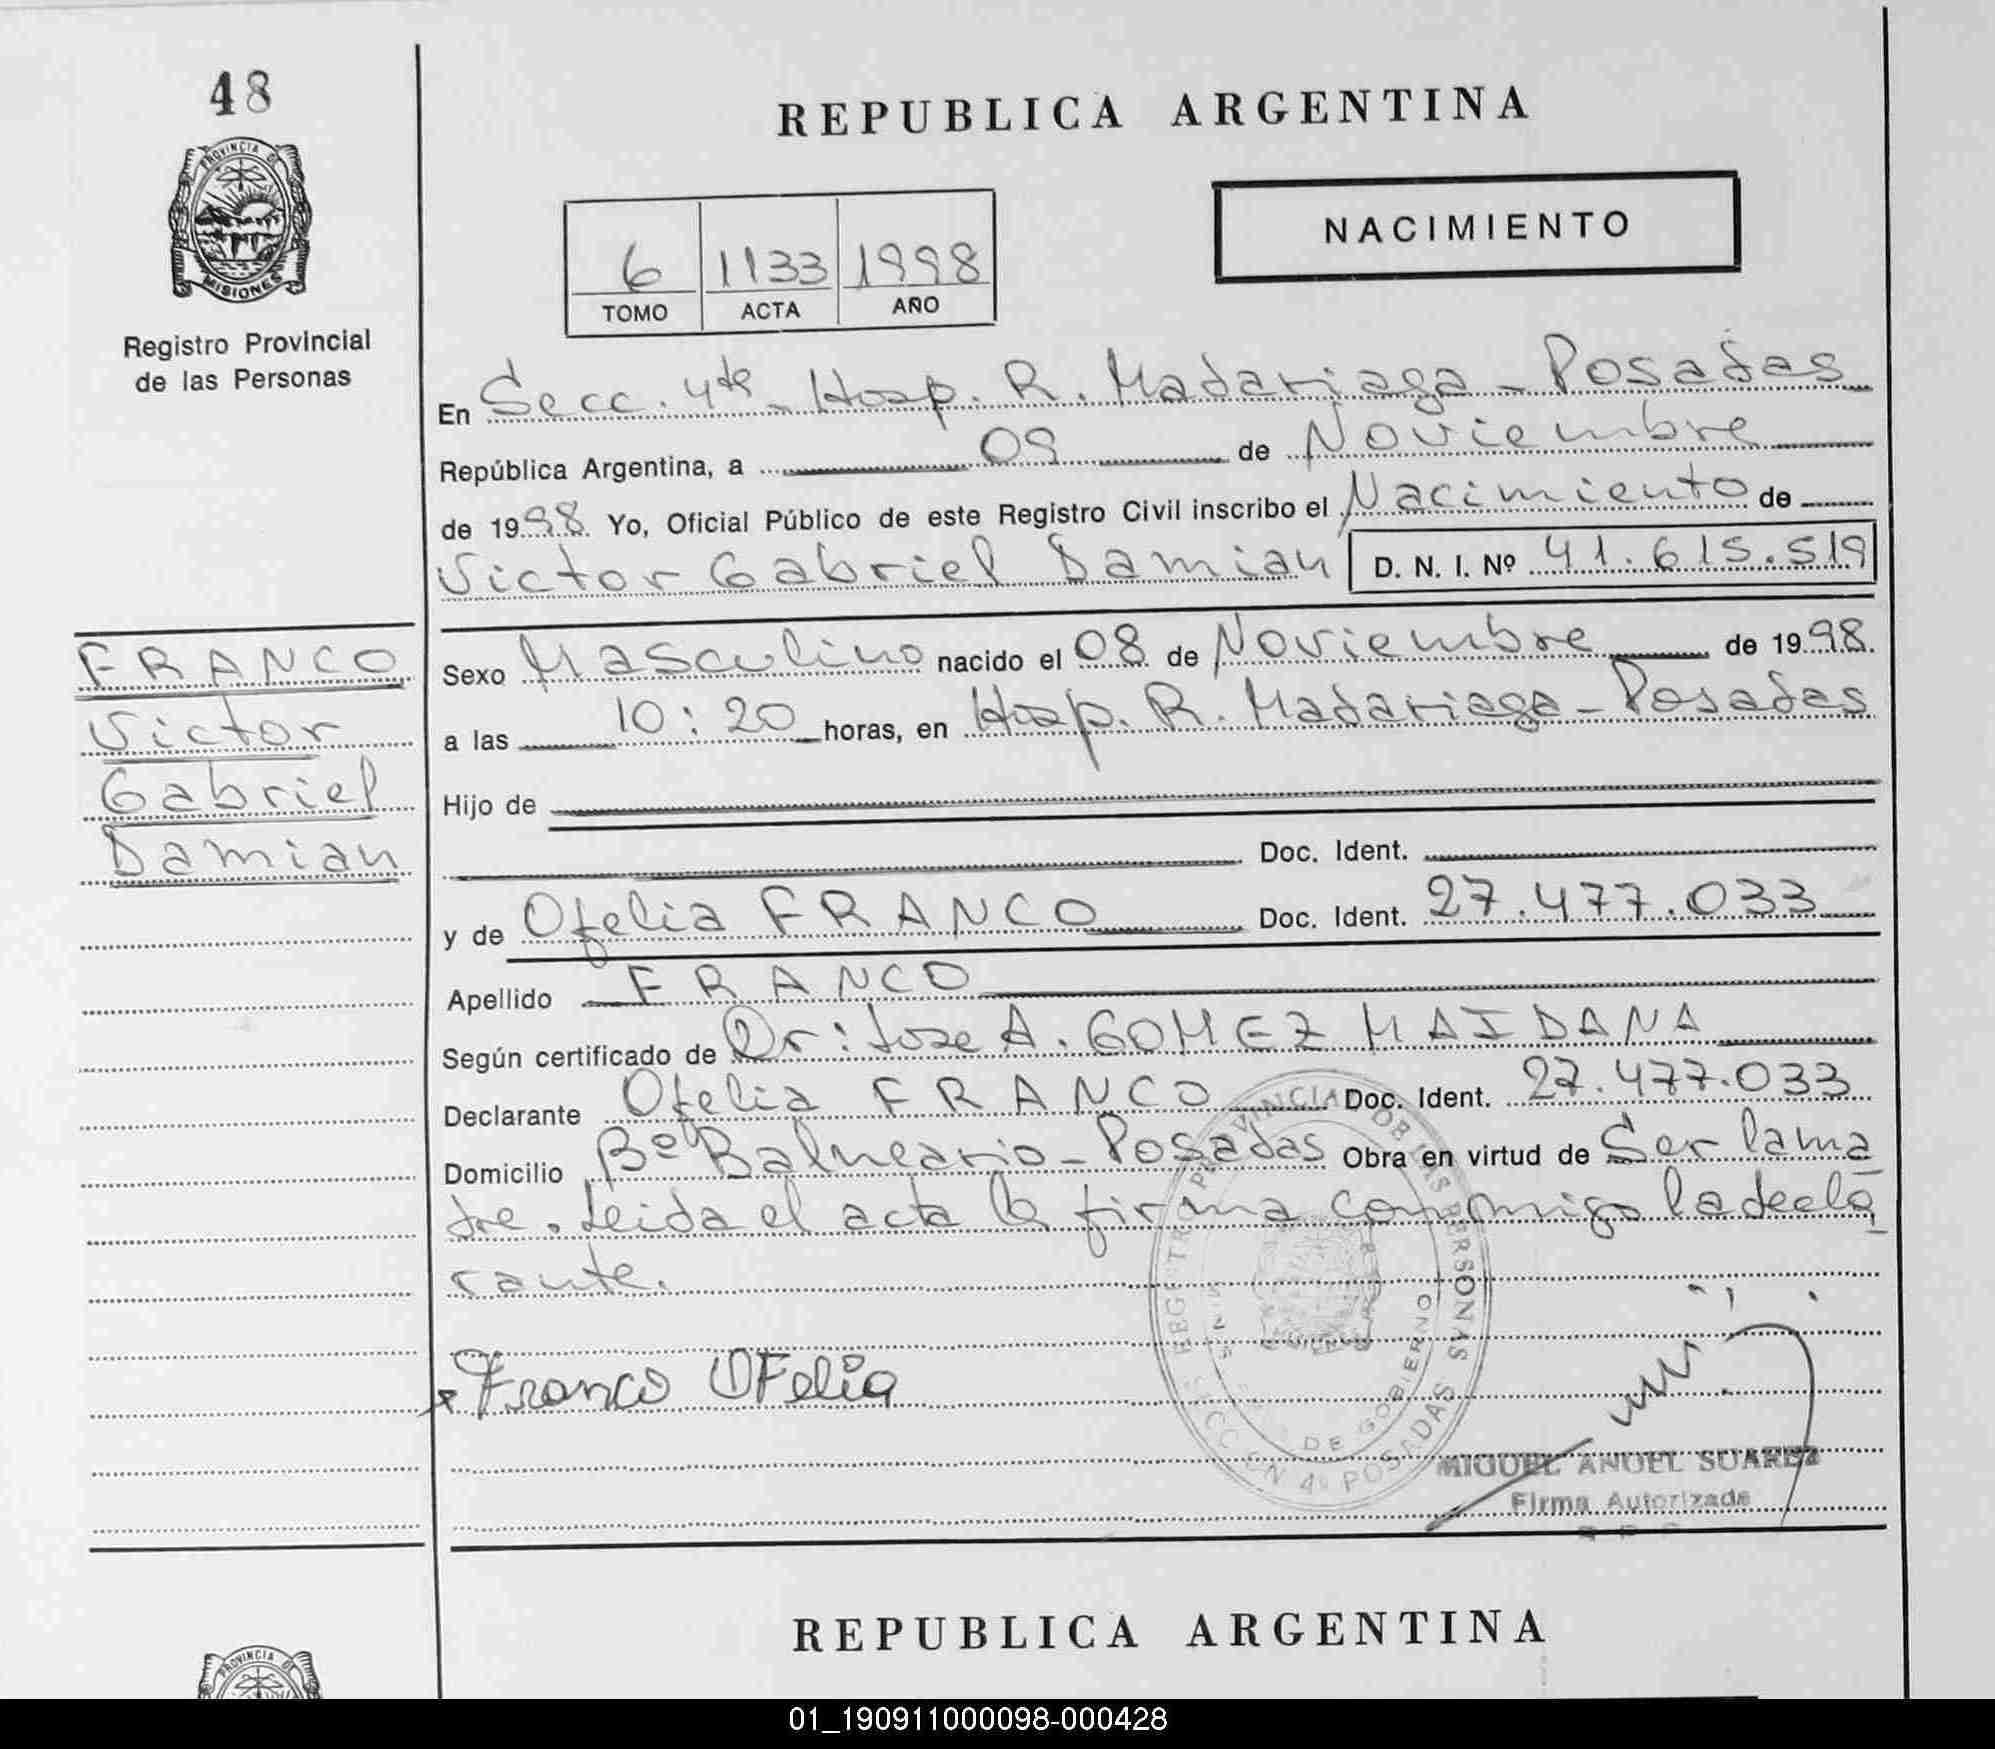 48
PROVINCIA DE
MISIONES
Registro Provincial
de las Personas
REPUBLICA ARGENTINA
NACIMIENTO
6 1133 1998
TOMO ACTA AÑO
En Secc. 4ta - Hosp. R. Madariaga - Posadas
República Argentina, a 09 de Noviembre
de 1998 Yo, Oficial Público de este Registro Civil inscribo el Nacimiento de
Victor Gabriel Damian D. N. I. Nº 41.615.519
FRANCO
Victor
Gabriel
Damian
Sexo Masculino nacido el 08 de Noviembre de 1998.
a las 10:20 horas, en Hosp. R. Madariaga - Posadas
Hijo de
Doc. Ident.
y de Ofelia FRANCO Doc. Ident. 27.477.033
Apellido FRANCO
Según certificado de Dr: Jose A. GOMEZ MAIDANA
Declarante Ofelia FRANCO Doc. Ident. 27.477.033
Domicilio Bº Balneario - Posadas Obra en virtud de Ser la ma
dre. Leida el acta la firma conmigo la decla
rante.
Franco OFelia
DE LAS PERSONAS
DE GOBIERNO
4º POSADAS
MIGUEL ANGEL SUAREZ
Firma Autorizada
REPUBLICA ARGENTINA
PROVINCIA DE
01_190911000098-000428